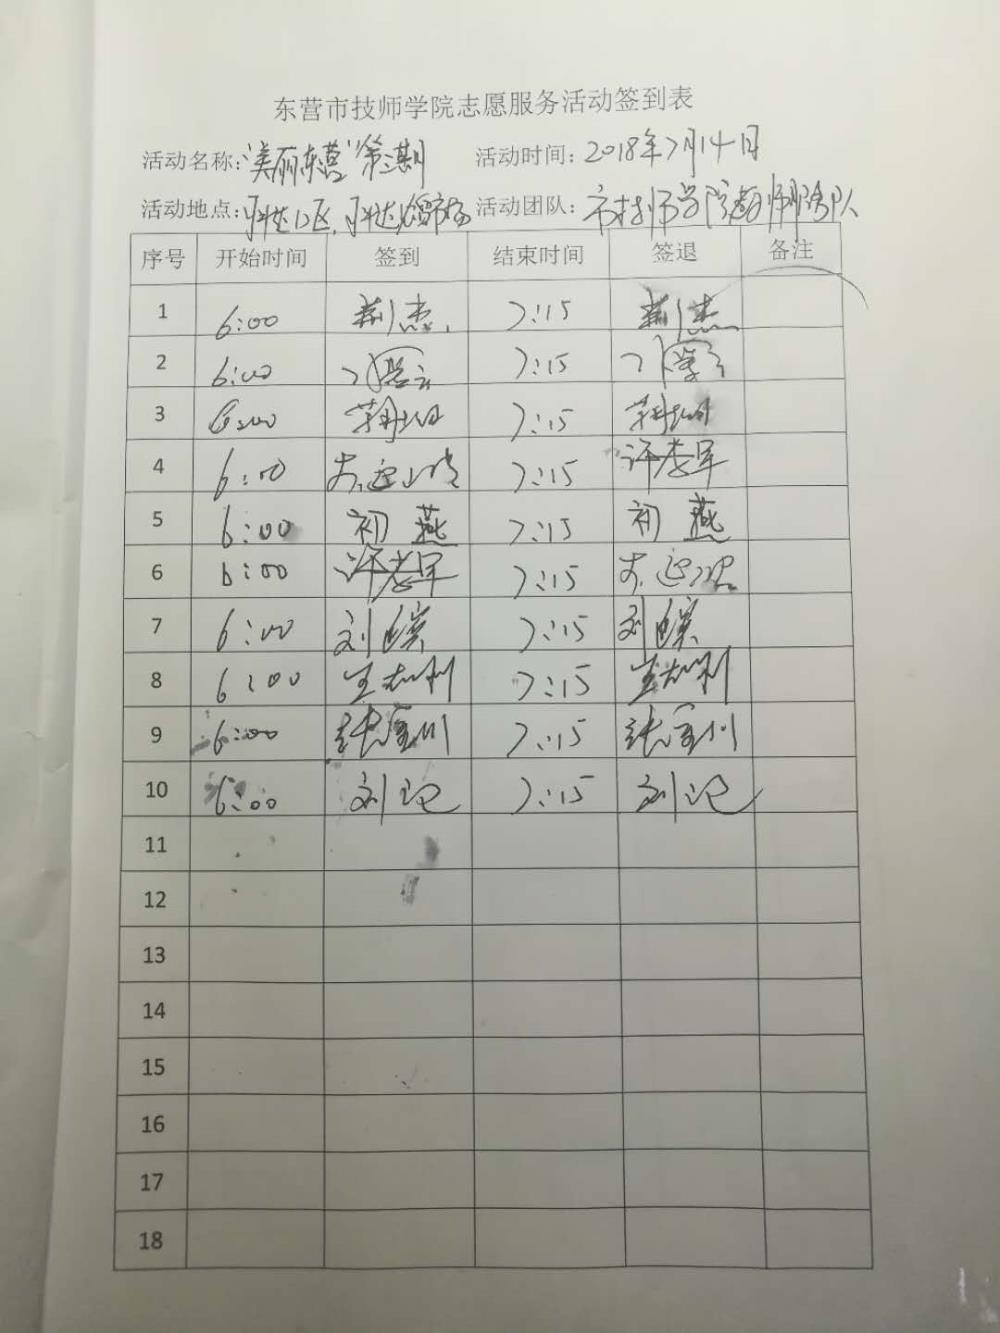 东营市技师学院志愿服务活动签到表
活动名称:"美丽东营"第三期 活动时间:2018年7月14日
活动地点: 活动团队:市技师学院教师服务队
序号 开始时间 签到 结束时间 签退 备注
1 6:00 荆杰 7:15 荆杰
2 6:00 7:15
3 6:00 7:15
4 6:00 7:15 许孝军
5 6:00 初燕 7:15 初燕
6 6:00 许孝军 7:15
7 6:00 刘 7:15 刘
8 6:00 王志刚 7:15 王志刚
9 6:00 张金川 7:15 张金川
10 6:00 刘 7:15 刘
11
12
13
14
15
16
17
18